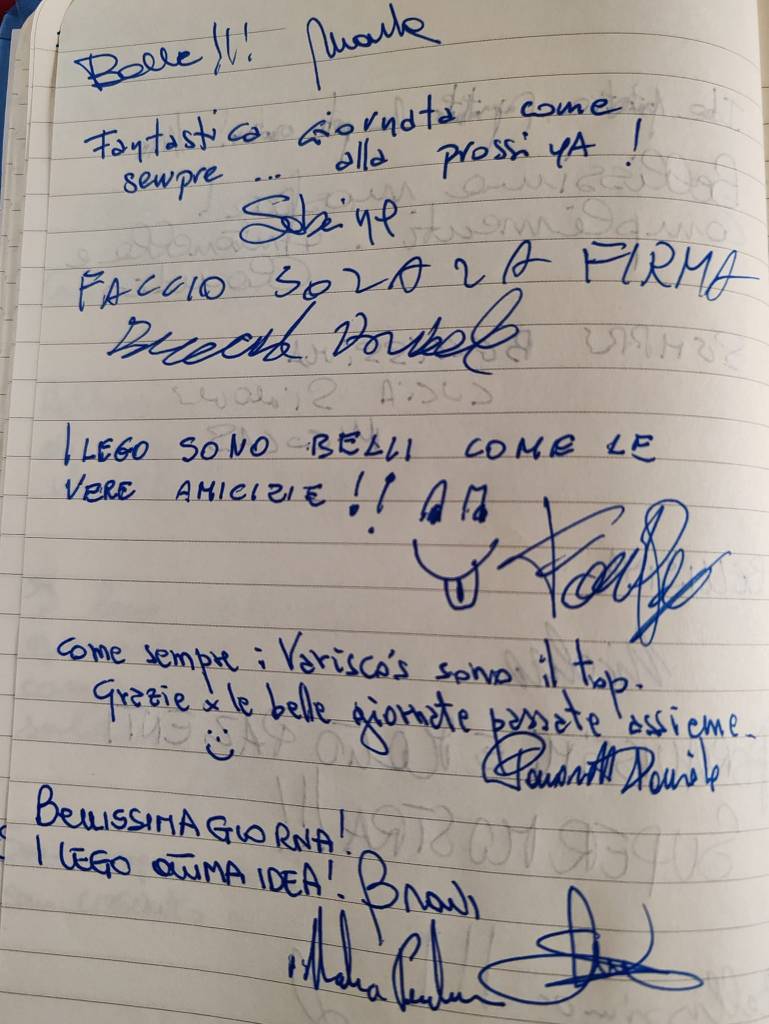 Belle!!!
Fantastica Giornata come
sempre ... alla prossiMA!
Sabine
FACCIO SOLA LA FIRMA
I LEGO SONO BELLI COME LE
VERE AMICIZIE!!
come sempre i Varisco's sono il top.
Grazie x le belle giornate passate assieme.
Daniele
BELLISSIMA GIORNA!
I LEGO OTTIMA IDEA! Bravi